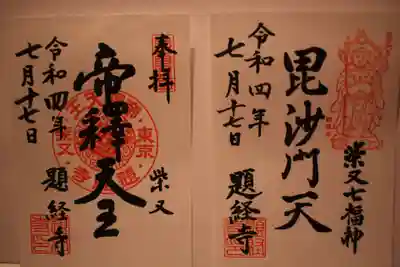 毘沙門天
柴又七福神
令和四年
七月十七日
題経寺
奉拝
帝釋天王
柴又
東京
令和四年
七月十七日
題経寺